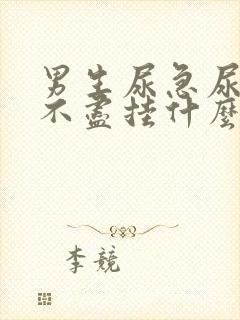 男生尿急尿
不盡掛什麼
李競